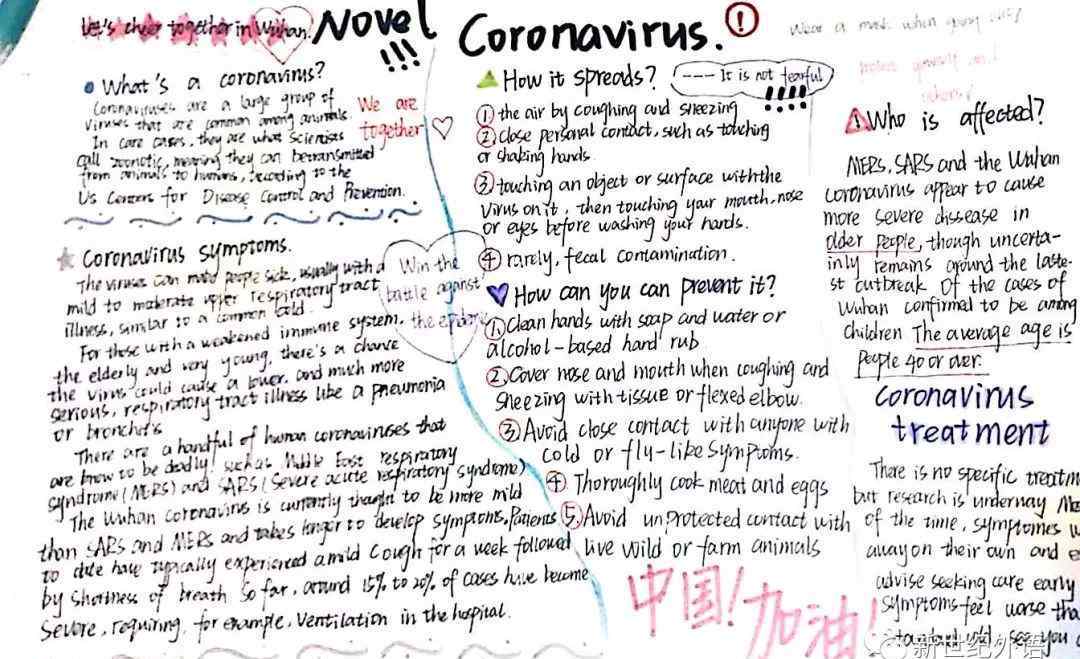 Let's cheer together in Wuhan!
Novel Coronavirus. !
!!!
Wear a mask when going out!
What's a coronavirus?
Coronaviruses are a large group of
viruses that are common among animals.
In care cases, they are what scientises
call zoonotic, meaning they can betransmitted
from animals to humans, according to the
Us Centers for Disease Control and Prevention.
We are
together
Coronavirus symptoms.
The viruses can make people sick, usually with a
mild to moderate upper respiratory tract
illness, similar to a common cold.
For those with a weakened immune system,
the elderly and very young, there's a chance
the virus could cause a lower, and much more
serious, respiratory tract illness like a pneumonia
or bronchitis
There are a handful of human coronaviruses that
are know to be deadly! such as Middle East respiratory
syndrome (MERS) and SARS (Severe acute respiratory syndrome)
The Wuhan coronavirus is currently thought to be more mild
than SARS and MERS and takes longer to develop symptoms. Patients
to date have typically experienced a mild cough for a week followed
by shortness of breath So far, around 15% to 20% of cases have become
severe, requiring, for example, ventilation in the hospital.
Win the
battle against
the epidemic
How it spreads?
--- It is not fearful
!!!!
① the air by coughing and sneezing
② close personal contact, such as touching
or shaking hands.
③ touching an object or surface withthe
virus on it, then touching your mouth, nose
or eyes before washing your hands.
④ rarely, fecal contamination.
How can you can prevent it?
① Clean hands with soap and water or
alcohol-based hard rub
② Cover nose and mouth when coughing and
sneezing with tissue or flexed elbow.
③ Avoid close contact with anyone with
cold or fly-like symptoms.
④ Thoroughly cook meat and eggs
⑤. Avoid unprotected contact with
live wild or farm animals
中国!加油!
Who is affected?
MERS, SARS and the Wuhan
coronavirus appear to cause
more severe dissease in
older people, though uncerta-
inly remains around the late-
st outbreak Of the cases of
Wuhan confirmed to be among
children The average age is
people 40 or over.
coronavirus
treatment
There is no specific treatm
but research is underway Mo
of the time, symptomes w
away on their own and e
advise seeking care early
symptoms feel worse tha
standard cold, see you
新世纪外语